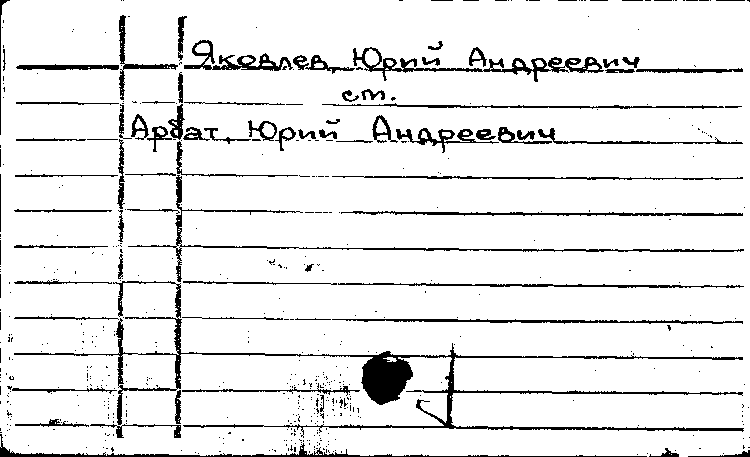 Яковлев, Юрий Андреевич
см.
Арбат, Юрий Андреевич